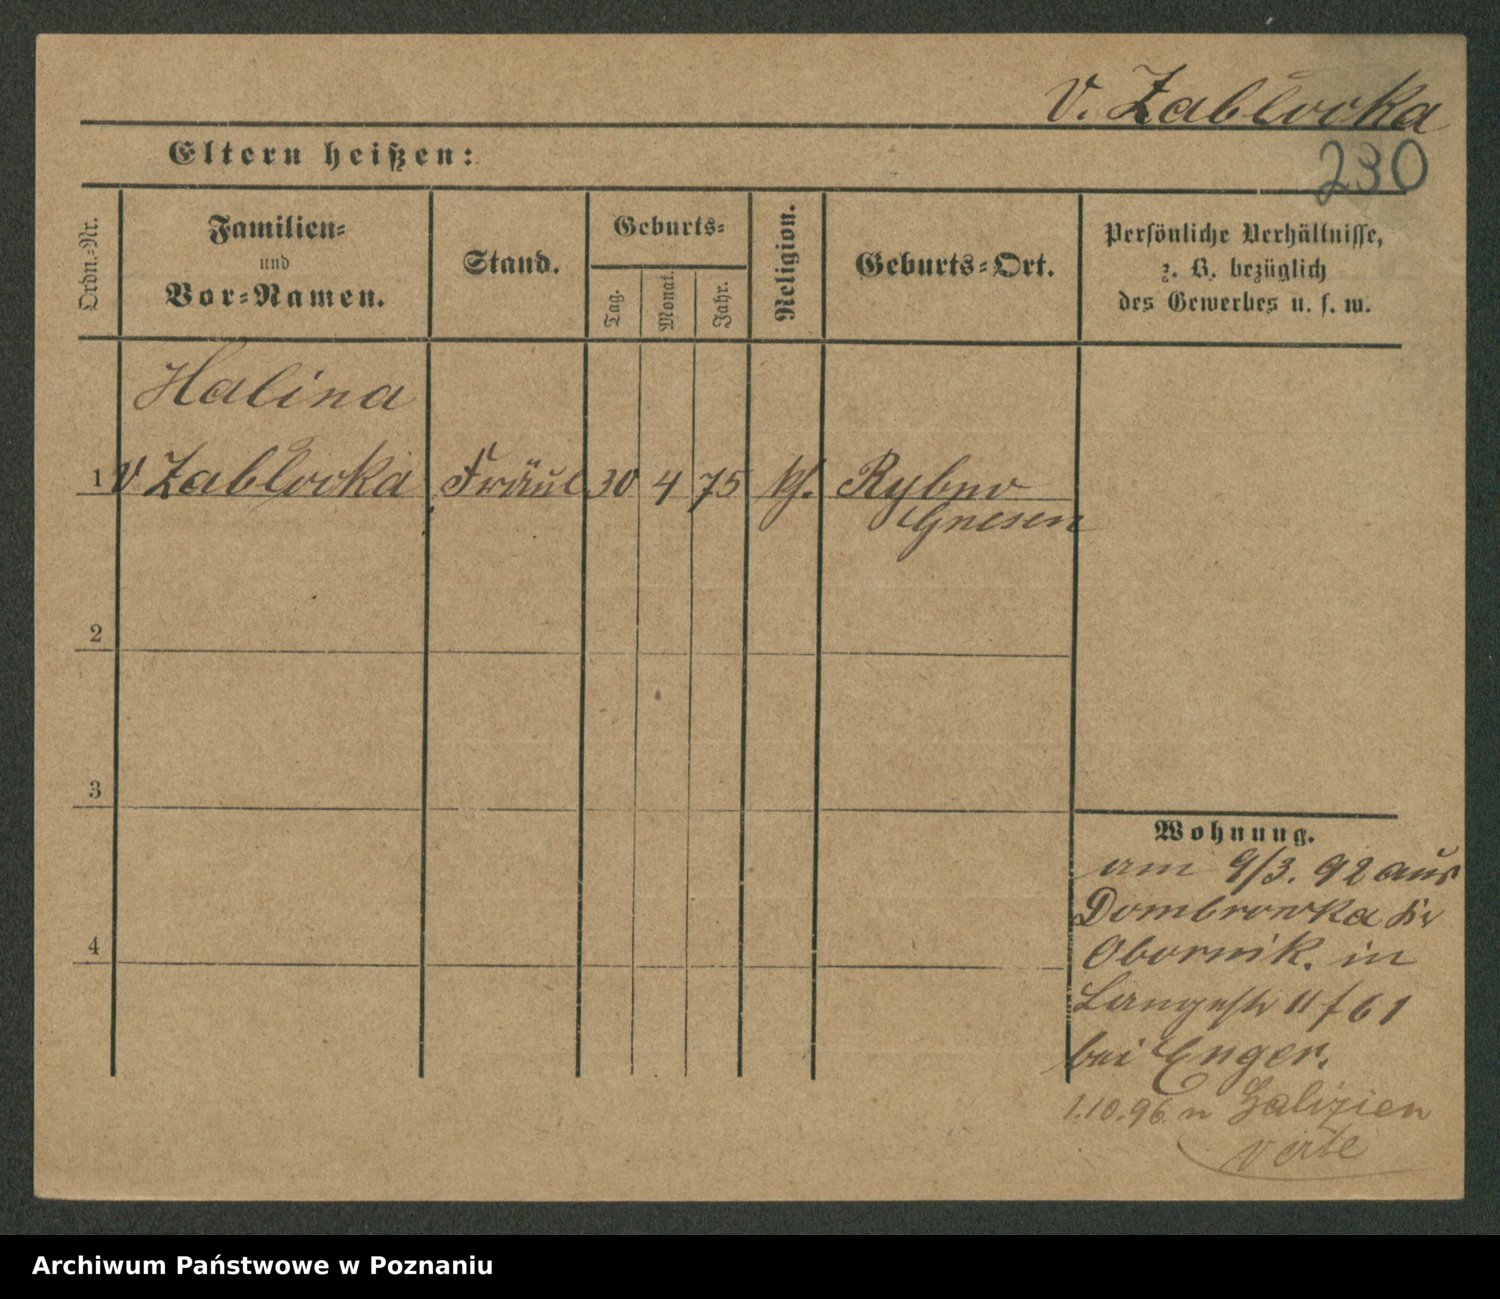 v. Zabłocka
Eltern heißen:
230
Ordn.-Nr.
Familien-
und
Vor-Namen.
Stand.
Geburts-
Tag.
Monat.
Jahr.
Religion.
Geburts-Ort.
Persönliche Verhältnisse,
z. B. bezüglich
des Gewerbes u. s. w.
Halina
1 v Zabłocka Fräul 30 4 75 kf. Rybno
Gnesen
2
3
4
Wohnung.
am 9/3. 92 aus
Dombrowka Kr
Obornik. in
Langestr 11 f 61
bei Enger.
1.10.96. n Galizien
verte
Archiwum Państwowe w Poznaniu